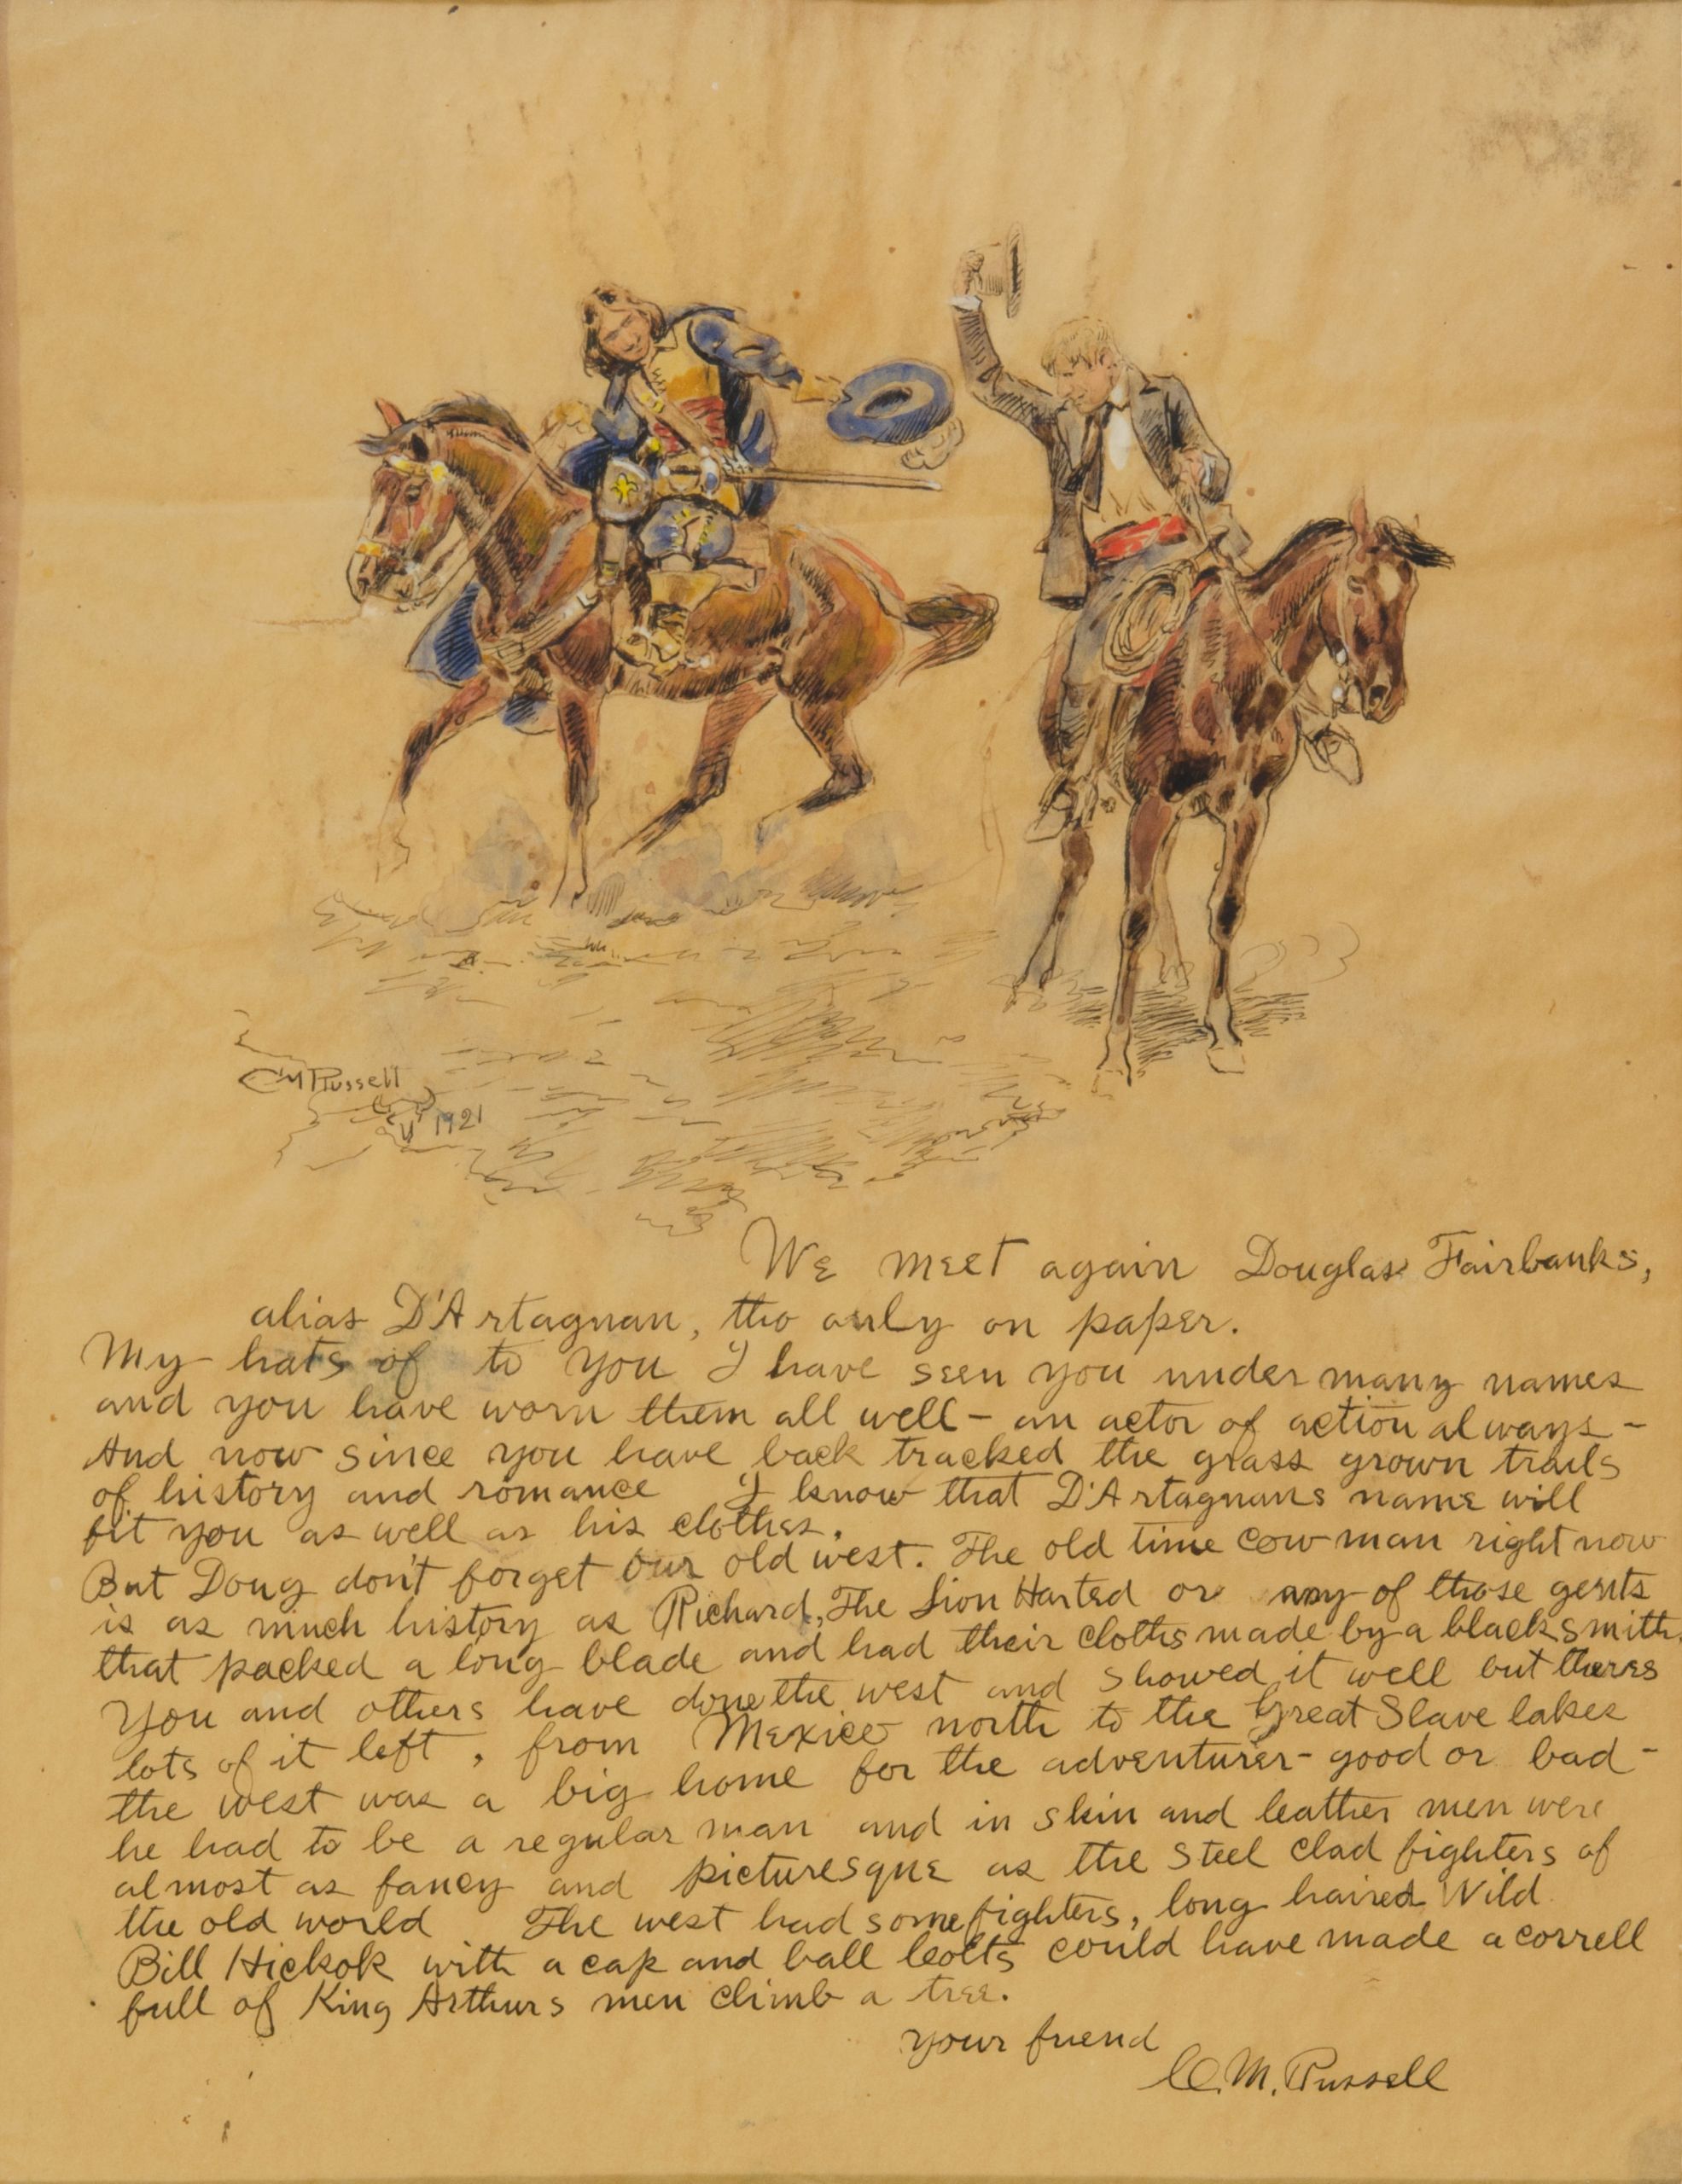 CM Russell
1921
We meet again Douglas Fairbanks,
alias D'Artagnan, tho only on paper.
My hats of to you I have seen you under many names
and you have worn them all well - an actor of action always -
And now since you have back tracked the grass grown trails
of history and romance I know that D'Artagnans name will
fit you as well as his clothes.
But Doug don't forget our old west. The old time cow man right now
is as much history as Richard, The Lion Harted or any of those gents
that packed a long blade and had their cloths made by a blacksmith.
You and others have done the west and showed it well but theres
lots of it left, from Mexico north to the Great Slave lakes
the west was a big home for the adventurer - good or bad -
he had to be a regular man and in skin and leather men were
almost as fancy and picturesque as the steel clad fighters of
the old world The west had some fighters, long haired Wild
Bill Hickok with a cap and ball Colts could have made a correll
full of King Arthurs men climb a tree.
your friend
C. M. Russell